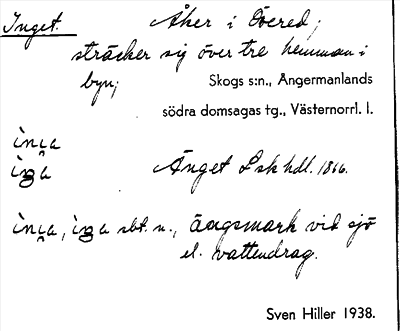 Inget. Åker i Övered,
sträcker sig över tre hemman i
byn; Skogs s:n., Ångermanlands
södra domsagas tg., Västernorrl. l.
ìnca
ìza Änget Lsk hdl. 1866.
ìnca, ìza sbt. n., ängsmark vid sjö
el. vattendrag.
Sven Hiller 1938.